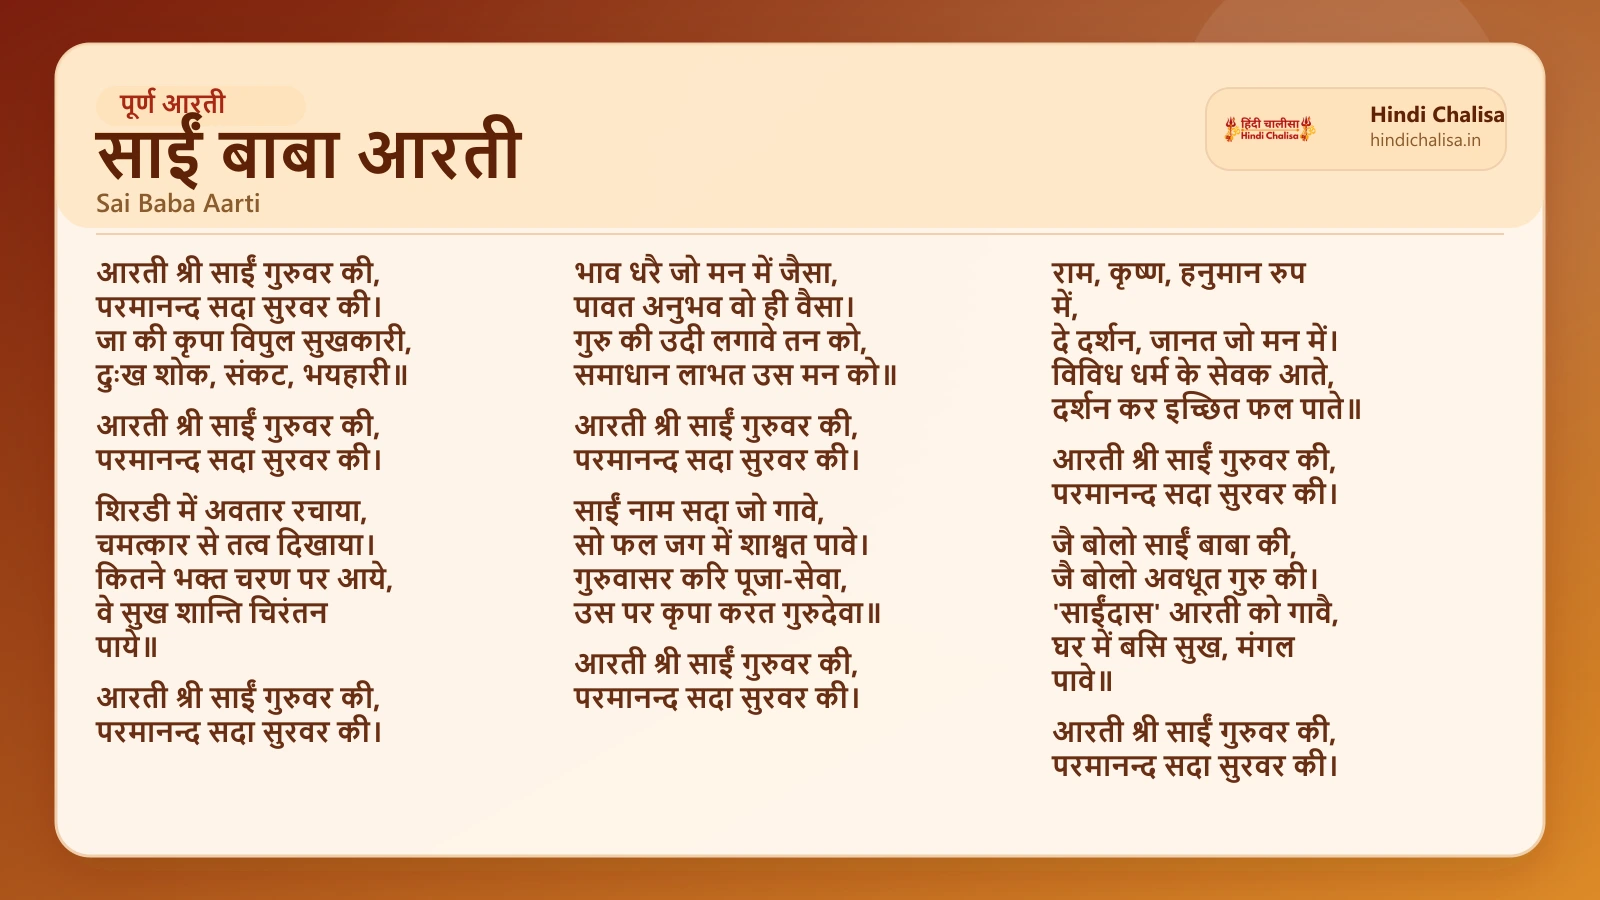 पूर्ण आरती
साईं बाबा आरती
Sai Baba Aarti
हिंदी चालीसा
Hindi Chalisa
Hindi Chalisa
hindichalisa.in
आरती श्री साईं गुरुवर की,
परमानन्द सदा सुरवर की।
जा की कृपा विपुल सुखकारी,
दुःख शोक, संकट, भयहारी॥
आरती श्री साईं गुरुवर की,
परमानन्द सदा सुरवर की।
शिरडी में अवतार रचाया,
चमत्कार से तत्व दिखाया।
कितने भक्त चरण पर आये,
वे सुख शान्ति चिरंतन
पाये॥
आरती श्री साईं गुरुवर की,
परमानन्द सदा सुरवर की।
भाव धरै जो मन में जैसा,
पावत अनुभव वो ही वैसा।
गुरु की उदी लगावे तन को,
समाधान लाभत उस मन को॥
आरती श्री साईं गुरुवर की,
परमानन्द सदा सुरवर की।
साईं नाम सदा जो गावे,
सो फल जग में शाश्वत पावे।
गुरुवासर करि पूजा-सेवा,
उस पर कृपा करत गुरुदेवा॥
आरती श्री साईं गुरुवर की,
परमानन्द सदा सुरवर की।
राम, कृष्ण, हनुमान रुप
में,
दे दर्शन, जानत जो मन में।
विविध धर्म के सेवक आते,
दर्शन कर इच्छित फल पाते॥
आरती श्री साईं गुरुवर की,
परमानन्द सदा सुरवर की।
जै बोलो साईं बाबा की,
जै बोलो अवधूत गुरु की।
'साईंदास' आरती को गावै,
घर में बसि सुख, मंगल
पावे॥
आरती श्री साईं गुरुवर की,
परमानन्द सदा सुरवर की।